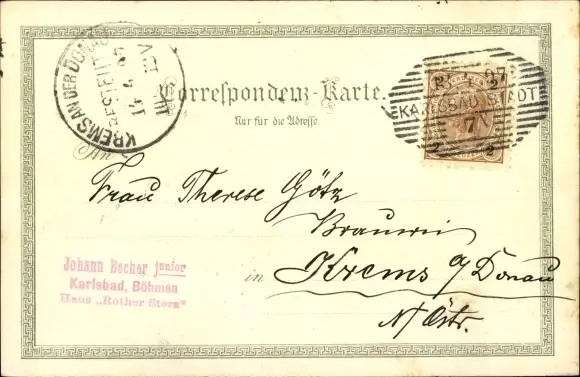 KREMS AN DER DONAU
BESTELLT
Correspondenz-Karte.
Nur für die Adresse.
2 2
KARLSBAD STADT
7
2 2
An
Frau Therese Götz
Brauerei
in Krems a/Donau
N/Östr.
Johann Becher junior
Karlsbad, Böhmen
Haus „Rother Stern“